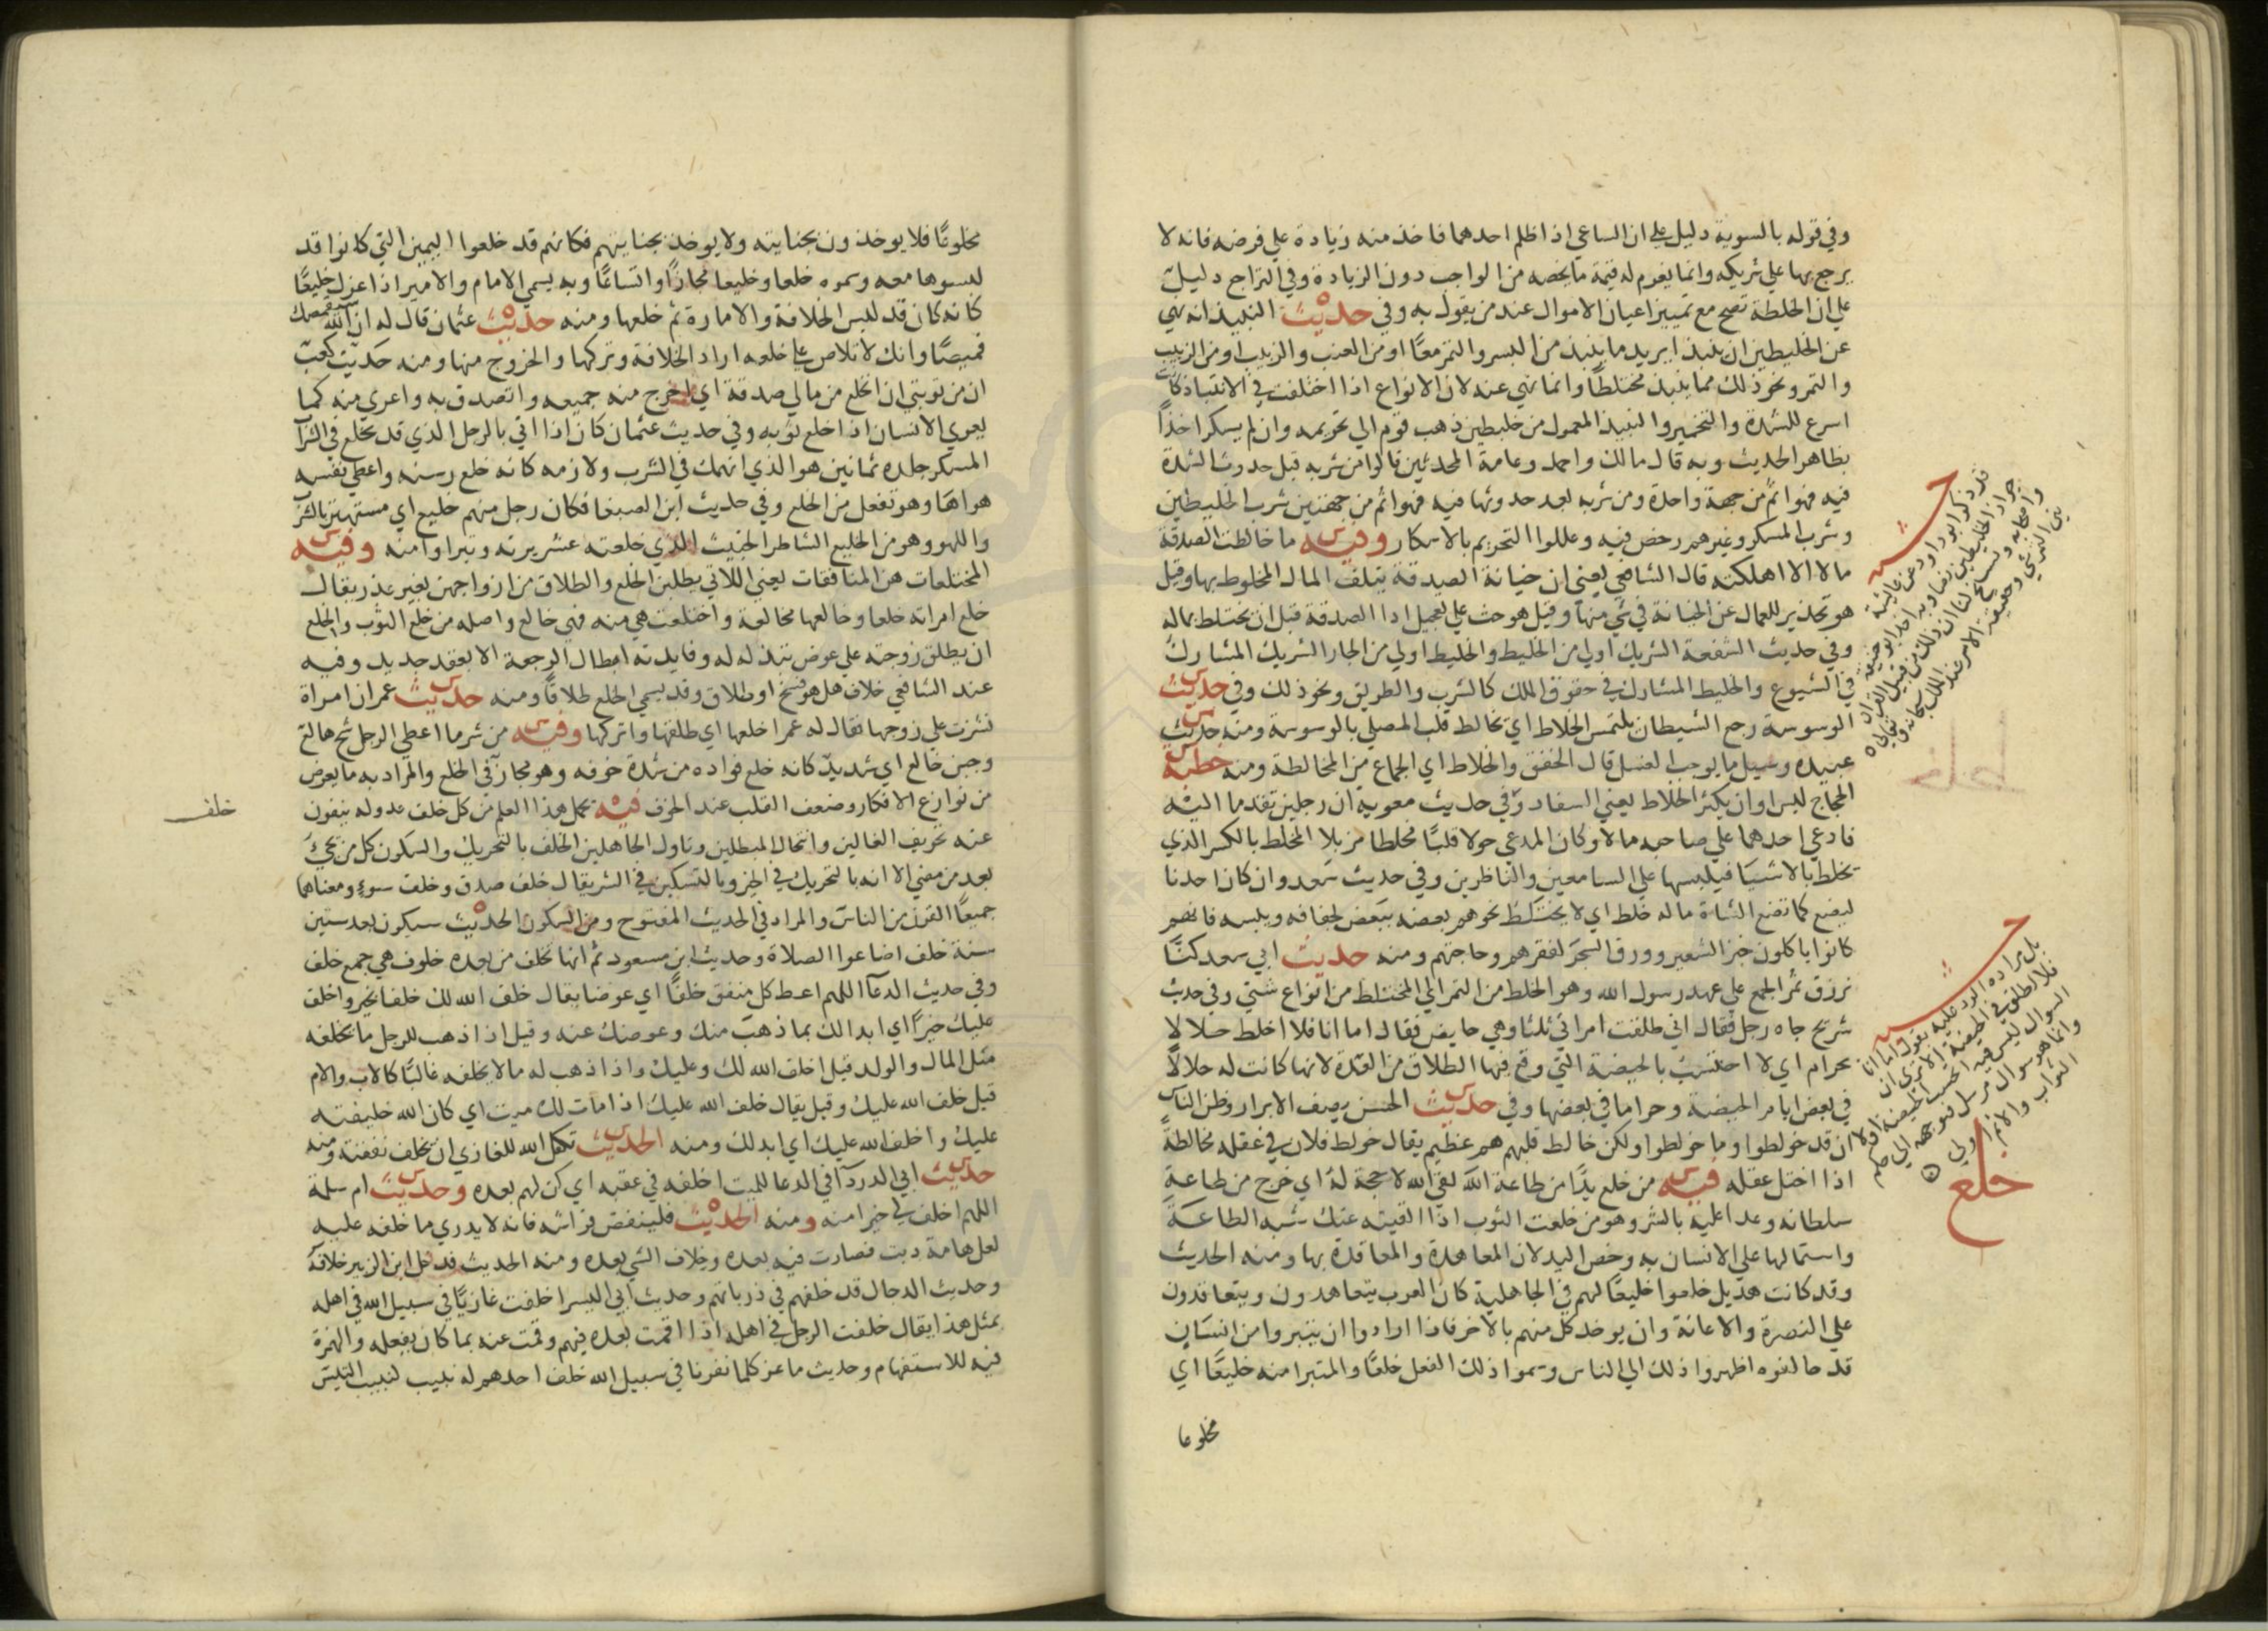 وفي قوله بالسوية دليل علي ان الساعي اذا ظلم احدهما فاخذ منه زيادة علي فرضه فانه لا
يرجع بها علي شريكه وانما يغرم له قيمة ما يخصه من الواجب دون الزيادة وفي التراجع دليل
علي ان الخلطة تصح مع تمييز اعيان الاموال عند من يقول به وفي حديث النبيذ انه نهي
عن الخليطين ان ينبذا يريد ما ينبذ من البسر والتمر معًا او من العنب والزبيب او من الزبيب
والتمر ونحو ذلك مما ينبذ مختلطًا وانما نهي عنه لان الانواع اذا اختلفت في الانتباذ كانت
اسرع للشدة والتخمير والنبيذ المعمول من خليطين ذهب قوم الي تحريمه وان لم يسكر اخذًا
بظاهر الحديث وبه قال مالك واحمد وعامة المحدثين قالوا من شربه قبل حدوث الشدة
فيه فهو اثم من جهة واحدة ومن شربه بعد حدوثها فيه فهو اثم من جهتين شرب الخليطين
وشرب المسكر وغيرهم رخص فيه وعللوا التحريم بالاسكار وفيه ما خالطت الصدقة
مالا الا اهلكته قال الشافعي يعني ان خيانة الصدقة يتلف المال المخلوط بها وقيل
هو تحذير للعمال عن الخيانة في شي منها وقيل هو حث علي تعجيل ادا الصدقة قبل ان تختلط بماله
وفي حديث الشفعة الشريك اولي من الخليط والخليط اولي من الجار الشريك المشارك
في الشيوع والخليط المشارك في حقوق الملك كالشرب والطريق ونحو ذلك وفي حديث
الوسوسة رجع الشيطان يلتمس الخلاط اي يخالط قلب المصلي بالوسوسة ومنه حديث
عبيده وسيل ما يوجب الغسل قال الخفق والخلاط اي الجماع من المخالطة ومنه خطبة
الحجاج ليس اوان يكثر الخلاط يعني السفاد وفي حديث معوية ان رجلين تقدما اليه
فادعي احدهما علي صاحبه مالا وكان المدعي حولا قلبًا مخلطا مزيلا المخلط بالكسر الذي
يخلط بالاشيا فيلبسها علي السامعين والناظرين وفي حديث سعد وان كان احدنا
ليضع كما تضع الشاة ما له خلط اي لا يختلط نجوهم بعضه ببعض لجفافه ويبسه فانهم
كانوا ياكلون خبز الشعير وورق الشجر لفقرهم وحاجتهم ومنه حديث ابي سعد كنا
نرزق تمر الجمع علي عهد رسول الله وهو الخلط من التمر اي المختلط من انواع شتي وفي حديث
شريح جاه رجل فقال اني طلقت امراتي ثلثا وهي حايض فقال اما انا فلا اخلط حلالا
بحرام اي لا احتسب بالحيضة التي وقع فيها الطلاق من العدة لانها كانت له حلالًا
في بعض ايام الحيضة وحراما في بعضها وفي حديث الحسن يصف الابرار وظن الناس
ان قد خولطوا وما خولطوا ولكن خالط قلبهم هم عظيم يقال خولط فلان في عقله مخالطة
اذا اختل عقله فيه من خلع يدًا من طاعة الله لقي الله لا حجة له اي خرج من طاعة
سلطانه وعدا عليه بالشر وهو من خلعت الثوب اذا القيته عنك شبه الطاعة
واستمالها علي الانسان به وخص اليد لان المعاهدة والمعاقدة بها ومنه الحديث
وقد كانت هذيل خلعوا خليعًا لهم في الجاهلية كان العرب يتعاهدون ويتعاقدون
علي النصرة والاعانة وان يوخذ كل منهم بالاخر فاذا ارادوا ان يتبروا من انسان
قد حالفوه اظهروا ذلك الي الناس وسموا ذلك الفعل خلعًا والمتبرا منه خليعًا اي
مخلوعا
خلط
خلع
مخلوعًا فلا يوخذون بجنايته ولا يوخذ بجنايتهم فكانهم قد خلعوا اليمين التي كانوا قد
لبسوها معه وسموه خلعا وخليعا مجازًا واتساعًا وبه يسمي الامام والامير اذا عزل خليعًا
كانه كان قد لبس الخلافة والامارة ثم خلعها ومنه حديث عثمان قال له ان الله سيقمصك
قميصًا وانك لا تلاص علي خلعه اراد الخلافة وتركها والخروج منها ومنه حديث كعب
ان من توبتي ان انخلع من مالي صدقة اي اخرج منه جميعه واتصدق به واعري منه كما
يعري الانسان اذا خلع ثوبه وفي حديث عثمان كان اذا اتي بالرجل الذي قد تخلع في الشراب
المسكر جلده ثمانين هو الذي انهمك في الشرب ولازمه كانه خلع رسنه واعطي نفسه
هواها وهو تفعل من الخلع وفي حديث ابن الصبغا فكان رجل منهم خليع اي مستهتر بالشرب
واللهو وهو من الخليع الشاطر الخبيث الذي خلعته عشيرته وتبراوا منه وفيه
المختلعات هن المنافقات يعني اللاتي يطلبن الخلع والطلاق من ازواجهن بغير عذر يقال
خلع امراته خلعا وخالعها مخالعة واختلعت هي منه فهي خالع واصله من خلع الثوب والخلع
ان يطلق زوجته علي عوض تبذله له وفايدته ابطال الرجعة الا بعقد جديد وفيه
عند الشافعي خلاف هل هو فسخ او طلاق وقد يسمي الخلع طلاقًا ومنه حديث عمر ان امراة
نشزت علي زوجها فقال له عمر اخلعها اي طلقها واتركها وفيه من شر ما اعطي الرجل شح هالع
وجبن خالع اي شديد كانه خلع فواده من شدة خوفه وهو مجاز في الخلع والمراد به ما يعرض
من نوازع الافكار وضعف القلب عند الخوف فيه يحمل هذا العلم من كل خلف عدوله ينفون
عنه تحريف الغالين وانتحال المبطلين وتاول الجاهلين الخلف بالتحريك والسكون كل من يجيَ
بعد من مضي الا انه بالتحريك في الخير وبالتسكين في الشر يقال خلف صدق وخلف سوء ومعناهما
جميعًا القرن من الناس والمراد في الحديث المفتوح ومن السكون الحديث سيكون بعد ستين
سنة خلف اضاعوا الصلاة وحديث ابن مسعود ثم انها تخلف من بعده خلوف هي جمع خلف
وفي حديث الدعا اللهم اعط كل منفق خلفًا اي عوضا يقال خلف الله لك خلفا بخير واخلف
عليك خيرًا اي ابدلك بما ذهب منك وعوضك عنه وقيل اذا ذهب للرجل ما يخلفه
مثل المال والولد قيل اخلف الله لك وعليك واذا ذهب له ما لا يخلفه غالبًا كالاب والام
قيل خلف الله عليك وقيل يقال خلف الله عليك اذا مات لك ميت اي كان الله خليفته
عليك واخلف الله عليك اي ابدلك ومنه الحديث تكفل الله للغازي ان يخلف نفقته ومنه
حديث ابي الدردآ في الدعا للميت اخلفه في عقبه اي كن لهم بعده وحديث ام سلمة
اللهم اخلف لي خيرا منه ومنه الحديث فلينفض فراشه فانه لا يدري ما خلفه عليه
لعل هامة دبت فصارت فيه بعده وخلاف الشي بعده ومنه الحديث فدخل ابن الزبير خلافه
وحديث الدجال قد خلفهم في ذرياتهم وحديث ابي اليسر اخلفت غازيًا في سبيل الله في اهله
بمثل هذا يقال خلفت الرجل في اهله اذا اقمت بعده فيهم وقمت عنه بما كان يفعله والهمزة
فيه للاستفهام وحديث ماعز كلما نفرنا في سبيل الله خلف احدهم له نبيب كنبيب التيس
خلف